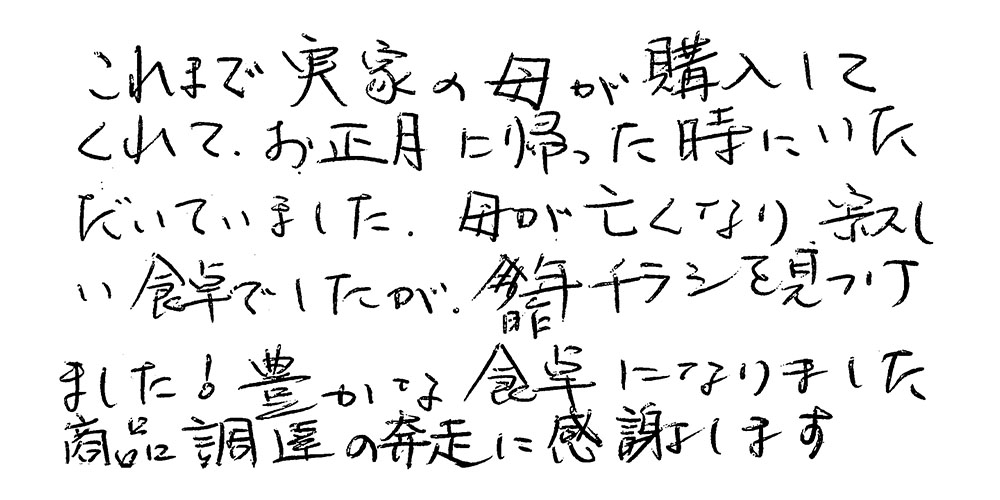 これまで実家の母が購入して
くれて、お正月に帰った時にいた
だいていました。母が亡くなり寂し
い食卓でしたが、昨年チラシを見つけ
ました！豊かな食卓になりました
商品調達の奔走に感謝します